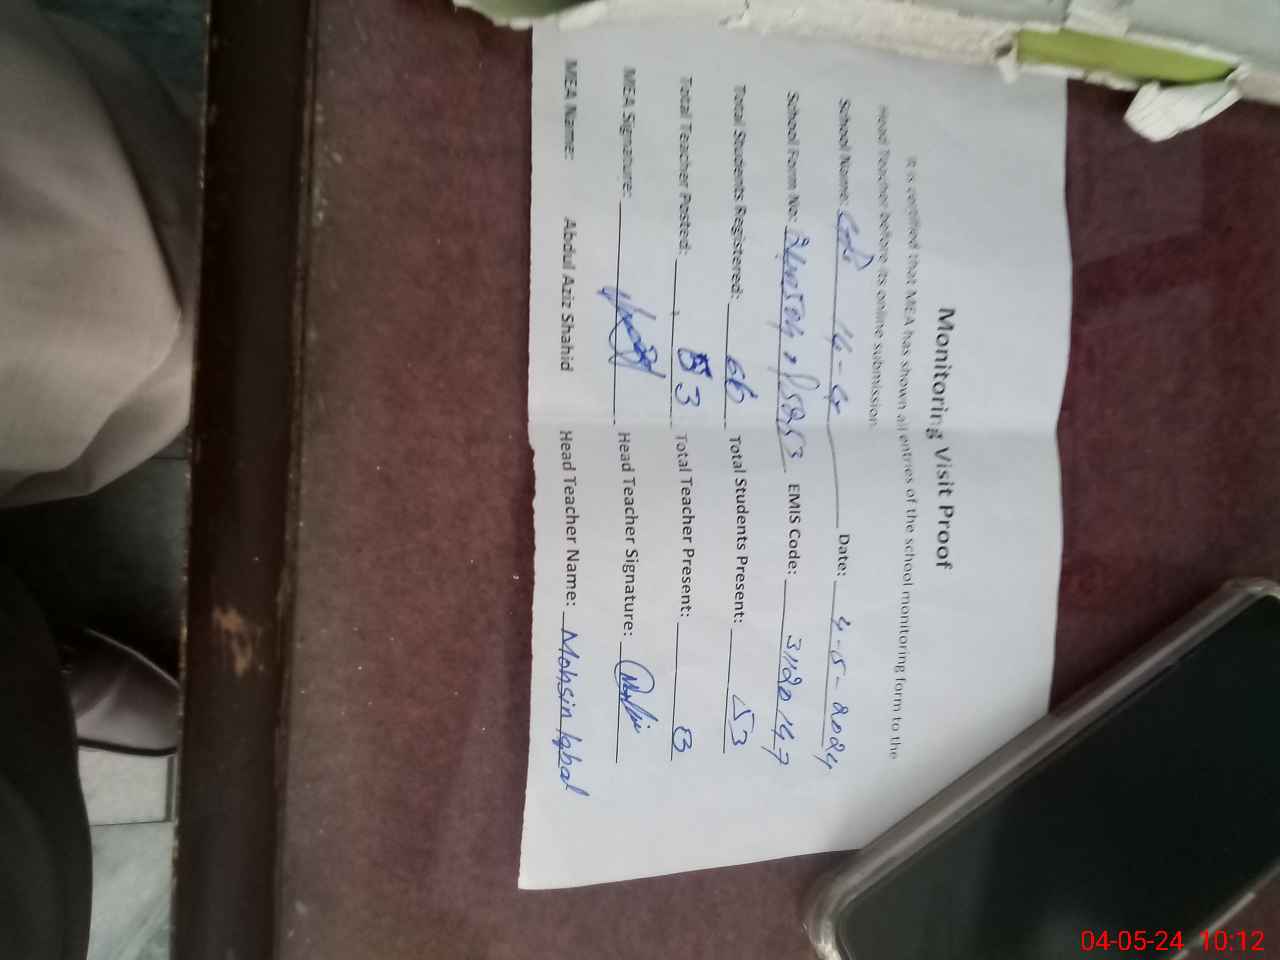 Monitoring Visit Proof
It is certified that MEA has shown all entries of the school monitoring form to the
Head Teacher before its online submission.
School Name: Date: 4-5-2024
School Form No: EMIS Code: 31120147
Total Students Registered: 66 Total Students Present: 53
Total Teacher Posted: 3 Total Teacher Present:
MEA Signature: Head Teacher Signature:
MEA Name: Abdul Aziz Shahid Head Teacher Name: Mohsin Iqbal
04-05-24 10:12